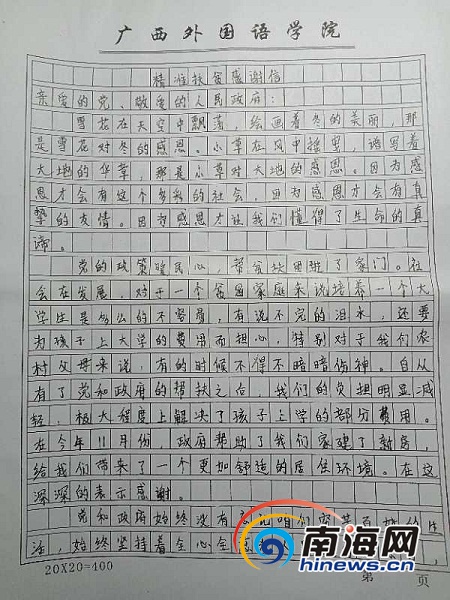 广西外国语学院
精准扶贫感谢信
亲爱的党、敬爱的人民政府：
雪花在天空中飘落，绘画着冬的美丽，那
是雪花对冬的感恩。小草在风中摇曳，谱写着
大地的华章，那是小草对大地的感恩。因为感
恩才会有这个多彩的社会，因为感恩才会有真
挚的友情。因为感恩才让我们懂得了生命的真
谛。
党的政策暖民心，帮贫扶困进了家门。社
会在发展，对于一个贫困家庭来说培养一个大
学生是多么的不容易，有说不完的泪水，还要
为孩子上大学的费用而担心，特别对于我们农
村父母来说，有的时候不得不暗暗伤神。自从
有了党和政府的帮扶之后，我们的负担明显减
轻，极大程度上解决了孩子上学的部分费用。
在今年11月份，政府帮助了我们家建了新房，
给我们带来了一个更加舒适的居住环境。在这
深深的表示感谢。
党和政府始终没有忘记咱们贫苦百姓的生
活，始终坚持着全心全意
20X20=400
第 页
南海网
hinews.cn